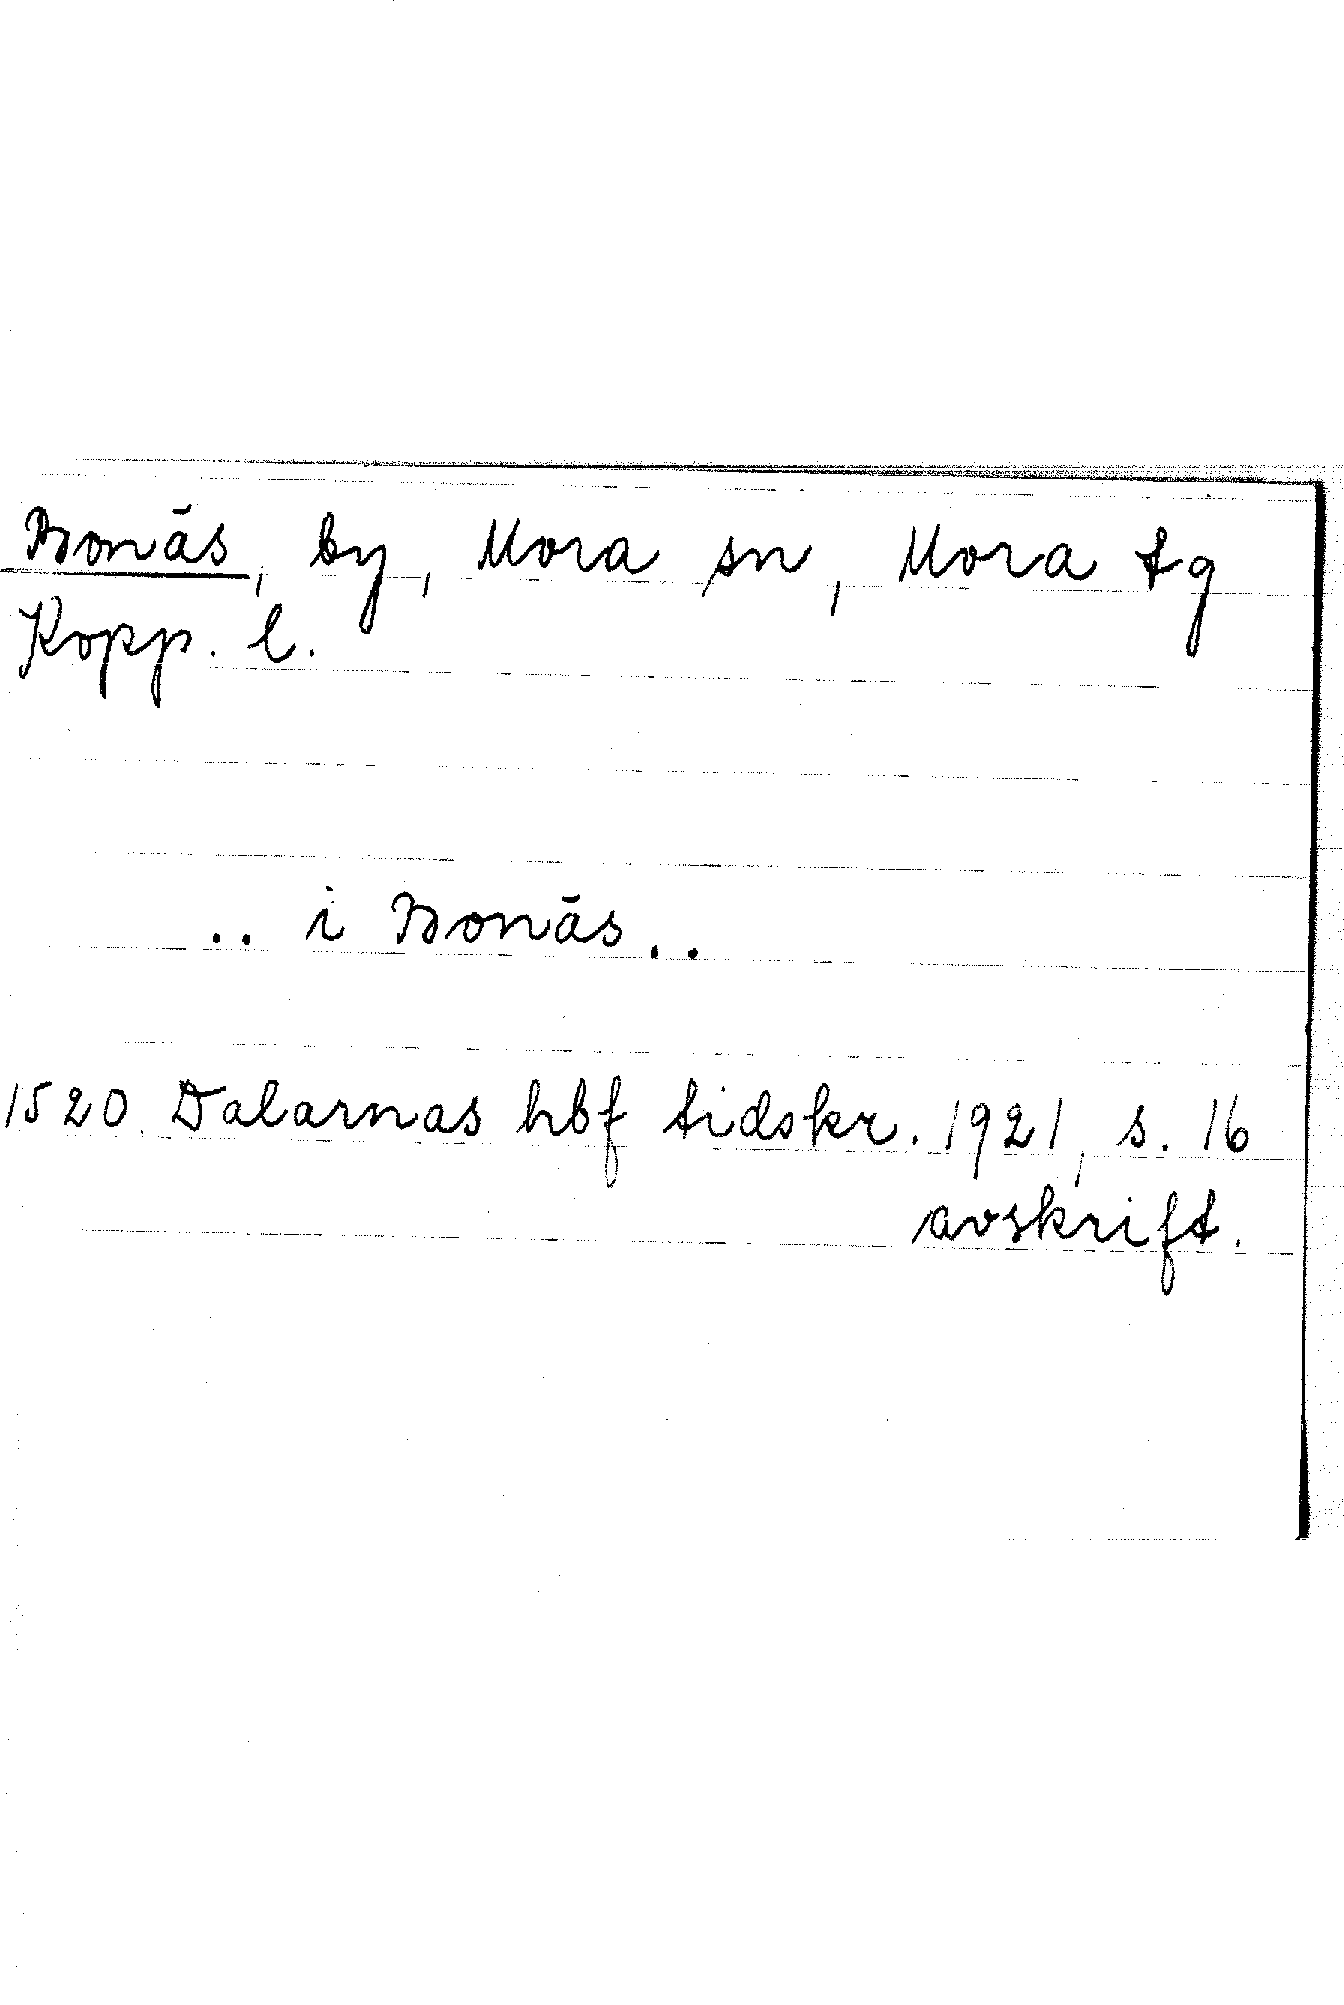 Bonäs, by, Mora sn, Mora tg
Kopp. l.
.. i Bonäs..
1520. Dalarnas hbf tidskr. 1921, s. 16
avskrift.